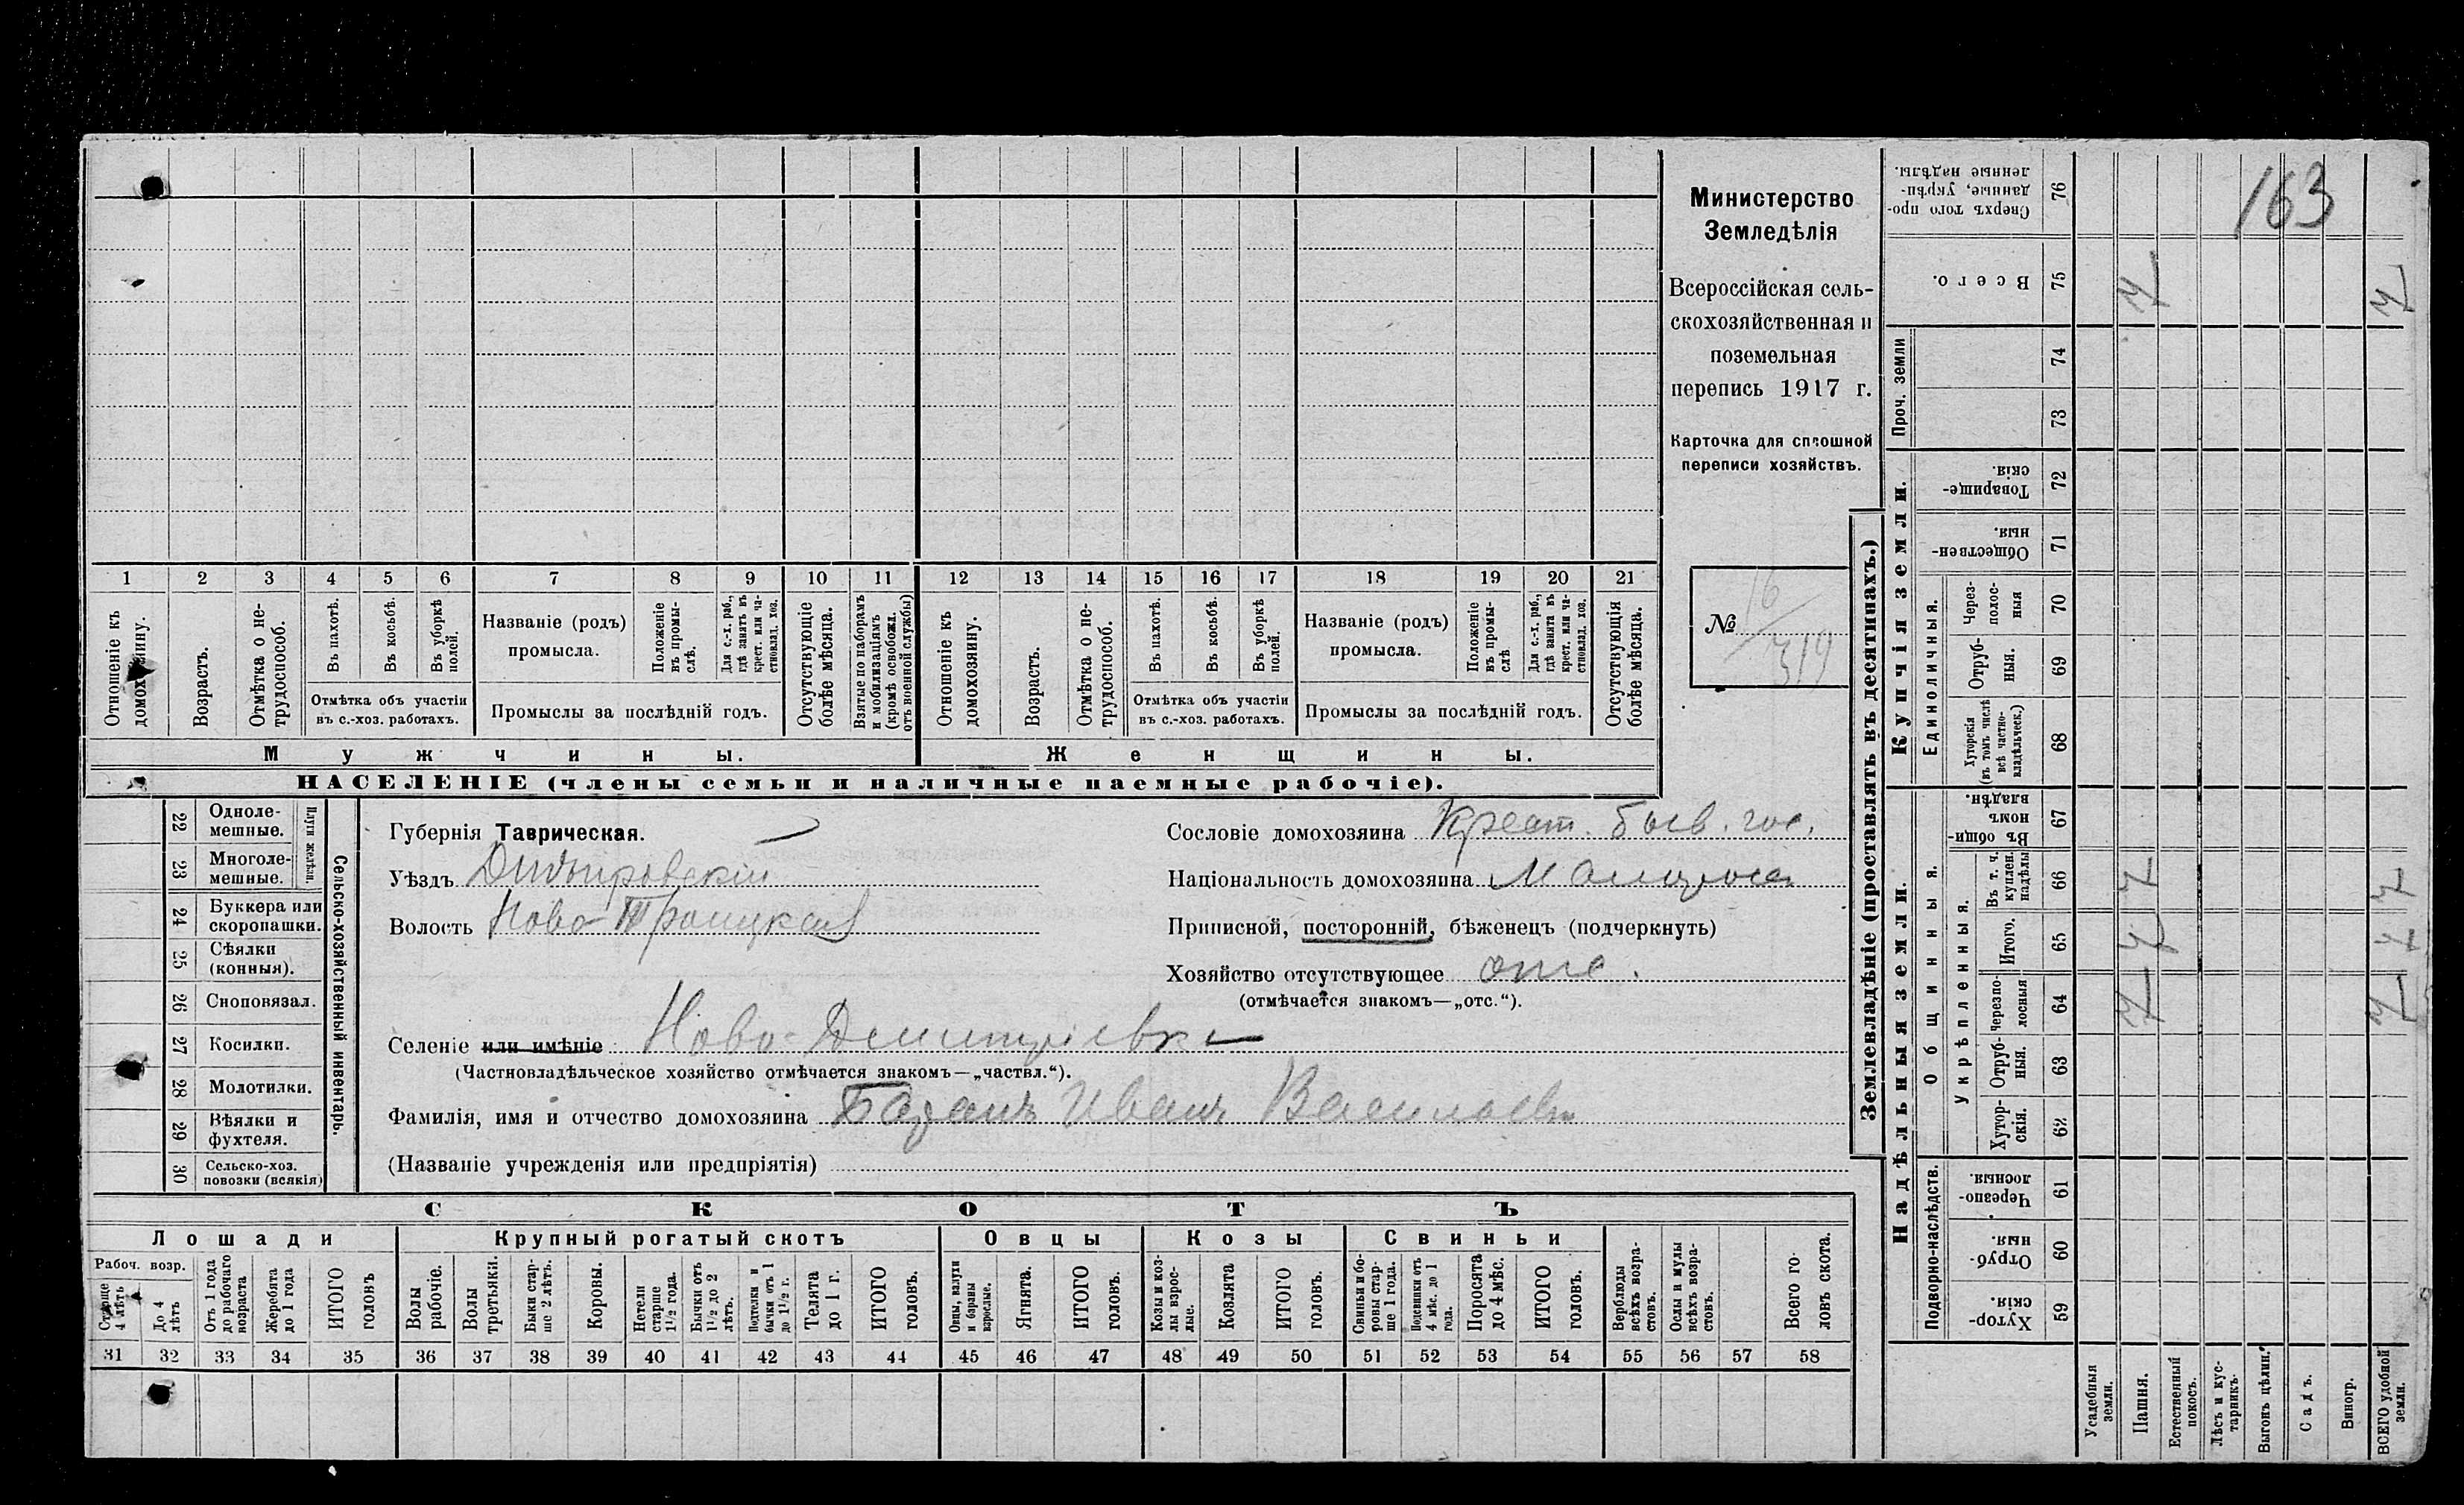 1 2 3 4 5 6 7 8 9 10 11 12 13 14 15 16 17 18 19 20 21
Отношеніе къ домохозяину.
Возрастъ.
Отмѣтка о не-
трудоспособ.
Въ пахотѣ.
Въ косьбѣ.
Въ уборкѣ
полей.
Отмѣтка объ участіи
въ с.-хоз. работахъ.
Названіе (родъ)
промысла.
Положеніе
въ промы-
слѣ.
Для с.-х. раб.,
гдѣ занятъ въ
крест. или ча-
стновлад. хоз.
Промыслы за послѣдній годъ.
Отсутствующіе
болѣе мѣсяца.
Взятые по наборамъ
и мобилизаціямъ
(кромѣ освобожд.
отъ военной службы)
Отношеніе къ
домохозяину.
Возрастъ.
Отмѣтка о не-
трудоспособ.
Въ пахотѣ.
Въ косьбѣ.
Въ уборкѣ
полей.
Отмѣтка объ участіи
въ с.-хоз. работахъ.
Названіе (родъ)
промысла.
Положеніе
въ промы-
слѣ
Для с.-х. раб.,
гдѣ занята въ
крест. или ча-
стновлад. хоз.
Промыслы за послѣдній годъ.
Отсутствующія
болѣе мѣсяца.
Мужчины.
Женщины.
НАСЕЛЕНІЕ (члены семьи и наличные наемные рабочіе).
Министерство
Земледѣлія
Всероссійская сель-
скохозяйственная и
поземельная
перепись 1917 г.
Карточка для сплошной
переписи хозяйствъ.
№ 16
319
22 Одноле-
мешные.
23 Многоле-
мешные.
Плуги желѣзн.
24 Буккера или
скоропашки.
25 Сѣялки
(конныя).
26 Сноповязал.
27 Косилки.
28 Молотилки.
29 Вѣялки и
фухтеля.
30 Сельско-хоз.
повозки (всякія)
Сельско-хозяйственный инвентарь.
Губернія Таврическая.
Уѣздъ Днѣпровскій
Волость Ново-Троицкая
Сословіе домохозяина Крест. быв. гос.
Національность домохозяина Малоросс
Приписной, посторонній, бѣженецъ (подчеркнуть)
Хозяйство отсутствующее отс.
(отмѣчается знакомъ—„отс.“).
Селеніе или имѣніе Ново-Дмитріевка
(Частновладѣльческое хозяйство отмѣчается знакомъ—„частвл.“).
Фамилія, имя и отчество домохозяина Иванъ Васильев
(Названіе учрежденія или предпріятія)
СКОТЪ
Лошади
Крупный рогатый скотъ
Овцы
Козы
Свиньи
Рабоч. возр.
Старше
4 лѣтъ
До 4
лѣтъ
Отъ 1 года
до рабочаго
возраста
Жеребята
до 1 года
ИТОГО
головъ
Волы
рабочіе.
Волы
третьяки.
Быки стар-
ше 2 лѣтъ.
Коровы.
Нетели
старше
1½ года.
Бычки отъ
1½ до 2
лѣтъ.
Подтелки и
бычки отъ 1
до 1½ г.
Телята
до 1 г.
ИТОГО
головъ.
Овцы, валухи
и бараны
взрослые.
Ягнята.
ИТОГО
головъ.
Козы и коз-
лы взрос-
лые.
Козлята
ИТОГО
головъ.
Свиньи и бо-
ровы стар-
ше 1 года.
Подсвинки отъ
4 мѣс. до 1
года.
Поросята
до 4 мѣс.
ИТОГО
головъ.
Верблюды
всѣхъ возра-
стовъ.
Ослы и мулы
всѣхъ возра-
стовъ.
Всего го-
ловъ скота.
31 32 33 34 35 36 37 38 39 40 41 42 43 44 45 46 47 48 49 50 51 52 53 54 55 56 57 58
Землевладѣніе (проставлять въ десятинахъ.)
163
Сверхъ того про-
данные, укрѣп-
ленные надѣлы.
76
Всего.
75
4 4
Проч. земли
74
73
Купчія земли.
Товарище-
скія.
72
Обществен-
ныя.
71
Единоличныя.
Через-
полос-
ныя
70
Отруб-
ныя.
69
Хуторскія
(въ томъ числѣ
всѣ частно-
владѣльческ.)
68
Надѣльныя земли.
Общинныя.
Въ общи-
номъ
владѣн.
67
Укрѣпленныя.
Въ т. ч.
куплен.
надѣлы
66
4 4
Итого.
65
4 4
Черезпо-
лосныя
64
4 4
Отруб-
ныя.
63
Хутор-
скія.
62
Подворно-наслѣдств.
Черезпо-
лосныя.
61
Отруб-
ныя.
60
Хутор-
скія.
59
Усадебныя
земли.
Пашня.
Естественный
покосъ.
Лѣсъ и кус-
тарникъ.
Выгонъ цѣлин.
Садъ.
Виногр.
ВСЕГО удобной
земли.